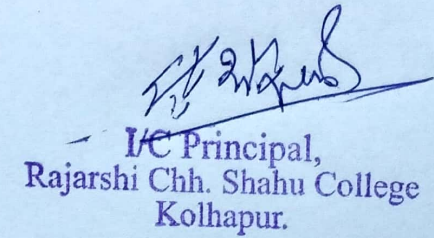 I/C Principal,
Rajarshi Chh. Shahu College
Kolhapur.